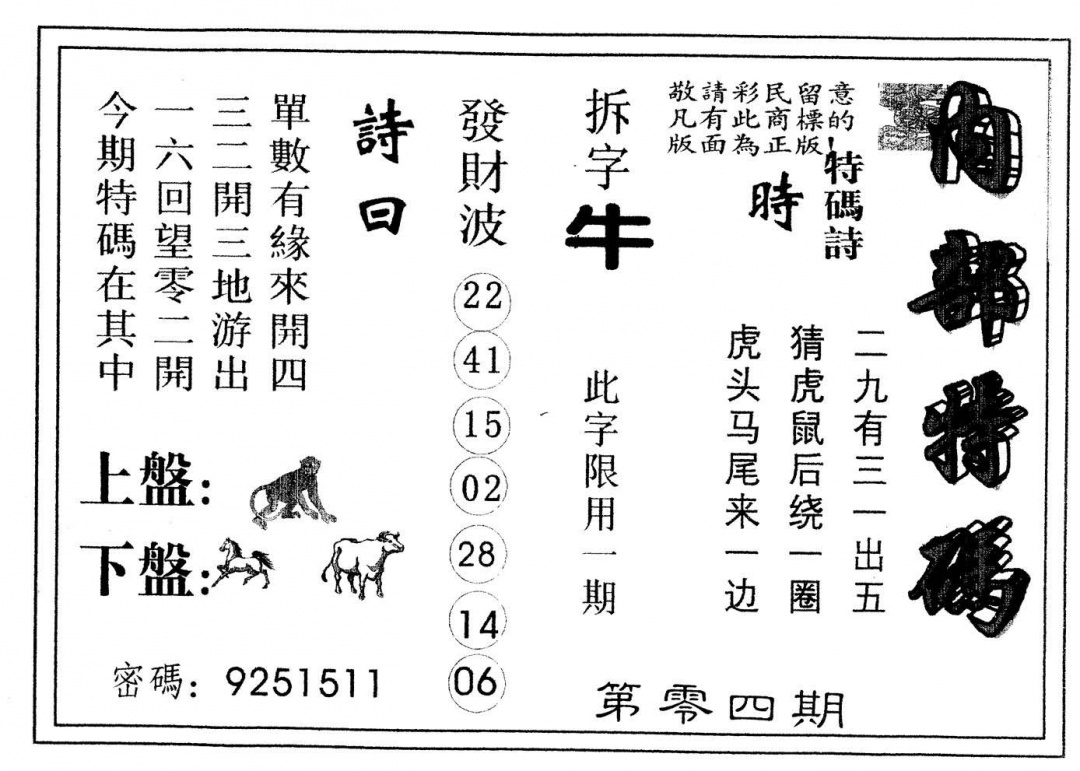 内部特碼
敬請彩民留意
凡有此商標的
版面為正版!
特碼詩
時
二九有三一出五
猜虎鼠后绕一圈
虎头马尾来一边
拆字
牛
此字限用一期
發財波
22
41
15
02
28
14
06
詩曰
單數有緣來開四
三二開三地游出
一六回望零二開
今期特碼在其中
上盤:
下盤:
密碼: 9251511
第零四期